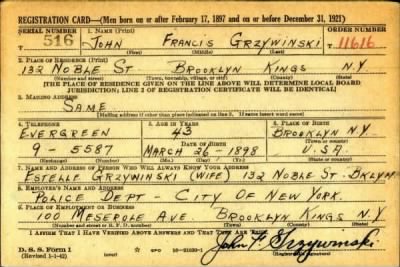 REGISTRATION CARD—(Men born on or after February 17, 1897 and on or before December 31, 1921)
SERIAL NUMBER 1. NAME (Print) ORDER NUMBER
516 JOHN FRANCIS GRZYWINSKI 11616
(First) (Middle) (Last)
2. PLACE OF RESIDENCE (Print)
132 NOBLE ST BROOKLYN KINGS N.Y.
(Number and street) (Town, township, village, or city) (County) (State)
[THE PLACE OF RESIDENCE GIVEN ON THE LINE ABOVE WILL DETERMINE LOCAL BOARD
JURISDICTION; LINE 2 OF REGISTRATION CERTIFICATE WILL BE IDENTICAL]
3. MAILING ADDRESS
SAME
[Mailing address if other than place indicated on line 2. If same insert word same]
4. TELEPHONE 5. AGE IN YEARS 6. PLACE OF BIRTH
EVERGREEN 43 BROOKLYN N.Y.
DATE OF BIRTH (Town or county)
9-5587 MARCH 26-1898 U.S.A.
(Exchange) (Number) (Mo.) (Day) (Yr.) (State or country)
7. NAME AND ADDRESS OF PERSON WHO WILL ALWAYS KNOW YOUR ADDRESS
ESTELLE GRZYWINSKI (WIFE) 132 NOBLE ST. BKLYN
8. EMPLOYER'S NAME AND ADDRESS
POLICE DEPT - CITY OF NEW YORK.
9. PLACE OF EMPLOYMENT OR BUSINESS
100 MESEROLE AVE. BROOKLYN KINGS N.Y.
(Number and street or R. F. D. number) (Town) (County) (State)
I AFFIRM THAT I HAVE VERIFIED ABOVE ANSWERS AND THAT THEY ARE TRUE.
D. S. S. Form 1
(Revised 1-1-42) GPO 16-21630-1 John F. Grzywinski